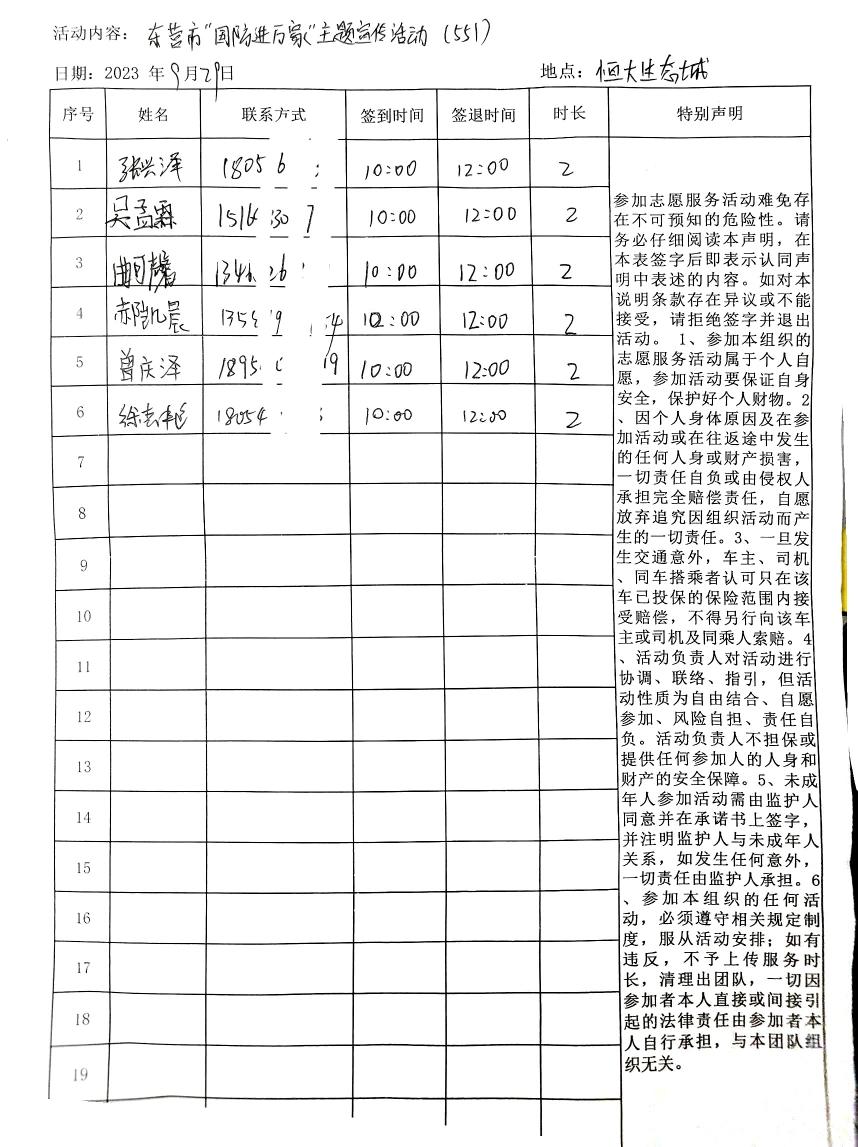 活动内容：东营市"国防进万家"主题宣传活动（551）
日期：2023 年9月29日 地点：恒大生态城
序号 姓名 联系方式 签到时间 签退时间 时长 特别声明
1 张兴泽 1805 6 10:00 12:00 2
2 吴孟霖 1516 30 7 10:00 12:00 2
3 曲可馨 1346 26 10:00 12:00 2
4 郝凯晨 135 9 4 10:00 12:00 2
5 曾庆泽 1895 9 10:00 12:00 2
6 徐志 18054 10:00 12:00 2
7
8
9
10
11
12
13
14
15
16
17
18
19
参加志愿服务活动难免存
在不可预知的危险性。请
务必仔细阅读本声明，在
本表签字后即表示认同声
明中表述的内容。如对本
说明条款存在异议或不能
接受，请拒绝签字并退出
活动。 1、参加本组织的
志愿服务活动属于个人自
愿，参加活动要保证自身
安全，保护好个人财物。2
、因个人身体原因及在参
加活动或在往返途中发生
的任何人身或财产损害，
一切责任自负或由侵权人
承担完全赔偿责任，自愿
放弃追究因组织活动而产
生的一切责任。3、一旦发
生交通意外，车主、司机
、同车搭乘者认可只在该
车已投保的保险范围内接
受赔偿，不得另行向该车
主或司机及同乘人索赔。4
、活动负责人对活动进行
协调、联络、指引，但活
动性质为自由结合、自愿
参加、风险自担、责任自
负。活动负责人不担保或
提供任何参加人的人身和
财产的安全保障。5、未成
年人参加活动需由监护人
同意并在承诺书上签字，
并注明监护人与未成年人
关系，如发生任何意外，
一切责任由监护人承担。6
、参加本组织的任何活
动，必须遵守相关规定制
度，服从活动安排；如有
违反，不予上传服务时
长，清理出团队，一切因
参加者本人直接或间接引
起的法律责任由参加者本
人自行承担，与本团队组
织无关。